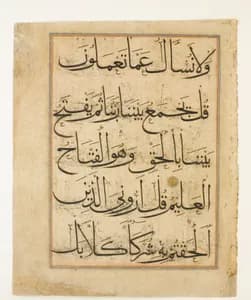 ولا نسأل عما تعملون
قل يجمع بيننا ربنا ثم يفتح
بيننا بالحق وهو الفتاح
العليم قل اروني الذين
الحقتم به شركا كلا بل